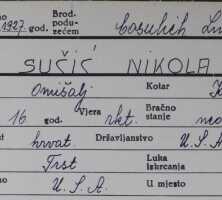 1927 god. Brod. podu- zećem Cosulich
SUČIĆ NIKOLA
Omišalj Kotar
16 god. Vjera rkt. Bračno stanje
hrvat. Državljanstvo U.S.A.
Trst Luka iskrcanja
U.S.A. U mjesto